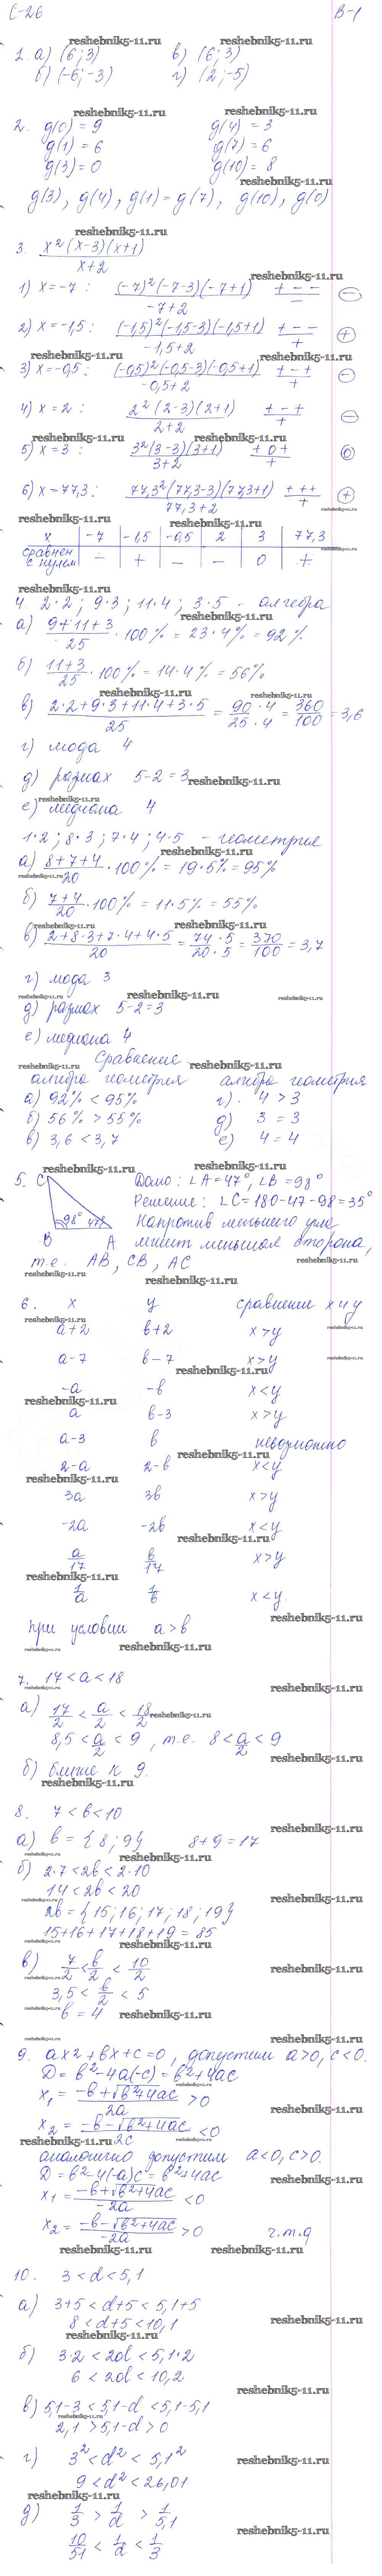 С-26 В-1
1. а) (6; 3) в) (6; 3)
б) (-6; -3) г) (2; -5)
2. g(0) = 9 g(4) = 3
g(1) = 6 g(7) = 6
g(3) = 0 g(10) = 8
g(3), g(4), g(1) = g(7), g(10), g(0)
3. x²(x-3)(x+1) / x+2
1) x=-7: (-7)²(-7-3)(-7+1) / -7+2 + - - / - -
2) x=-1,5: (-1,5)²(-1,5-3)(-1,5+1) / -1,5+2 + - - / + +
3) x=-0,5: (-0,5)²(-0,5-3)(-0,5+1) / -0,5+2 + - + / + -
4) x=2: 2²(2-3)(2+1) / 2+2 + - + / + -
5) x=3: 3²(3-3)(3+1) / 3+2 + 0 + / + 0
6) x=77,3: 77,3²(77,3-3)(77,3+1) / 77,3+2 + + + / + +
x -7 -1,5 -0,5 2 3 77,3
сравнен с нулем - + - - 0 +
4. 2·2; 9·3; 11·4; 3·5 - алгебра
а) 9+11+3 / 25 · 100% = 23·4% = 92%
б) 11+3 / 25 · 100% = 14·4% = 56%
в) 2·2+9·3+11·4+3·5 / 25 = 90·4 / 25·4 = 360/100 = 3,6
г) мода 4
д) размах 5-2=3
е) медиана 4
1·2; 8·3; 7·4; 4·5 - геометрия
а) 8+7+4 / 20 · 100% = 19·5% = 95%
б) 7+4 / 20 · 100% = 11·5% = 55%
в) 2+8·3+7·4+4·5 / 20 = 74·5 / 20·5 = 370/100 = 3,7
г) мода 3
д) размах 5-2=3
е) медиана 4
Сравнение
алгебра геометрия алгебра геометрия
а) 92% < 95% г) 4 > 3
б) 56% > 55% д) 3 = 3
в) 3,6 < 3,7 е) 4 = 4
5. C Дано: ∠A=47°, ∠B=98°
Решение: ∠C=180-47-98=35°
98° 47° Напротив меньшего угла
B A лежит меньшая сторона,
т.е. AB, CB, AC
6. x y сравнение x и y
a+2 b+2 x>y
a-7 b-7 x>y
-a -b x<y
a b-3 x>y
a-3 b невозможно
2-a 2-b x<y
3a 3b x>y
-2a -2b x<y
a/17 b/17 x>y
1/a 1/b x<y
при условии a>b
7. 17<a<18
а) 17/2 < a/2 < 18/2
8,5 < a/2 < 9, т.е. 8 < a/2 < 9
б) ближе к 9.
8. 7<b<10
а) b = {8; 9} 8+9=17
б) 2·7<2b<2·10
14<2b<20
2b={15; 16; 17; 18; 19}
15+16+17+18+19=85
в) 7/2 < b/2 < 10/2
3,5 < b/2 < 5
b=4
9. ax2+bx+c=0, допустим a>0, c<0.
D=b²-4a(-c)=b²+4ac
x₁ = -b+√b²+4ac / 2a >0
x₂ = -b-√b²+4ac / 2c <0
аналогично допустим a<0, c>0.
D=b²-4(-a)c=b²+4ac
x₁ = -b+√b²+4ac / -2a <0
x₂ = -b-√b²+4ac / -2a >0 ч.т.д
10. 3<d<5,1
а) 3+5<d+5<5,1+5
8<d+5<10,1
б) 3·2<2d<5,1·2
6<2d<10,2
в) 5,1-3<5,1-d<5,1-5,1
2,1>5,1-d>0
г) 3²<d²<5,1²
9<d²<26,01
д) 1/3 > 1/d > 1/5,1
10/51 < 1/d < 1/3